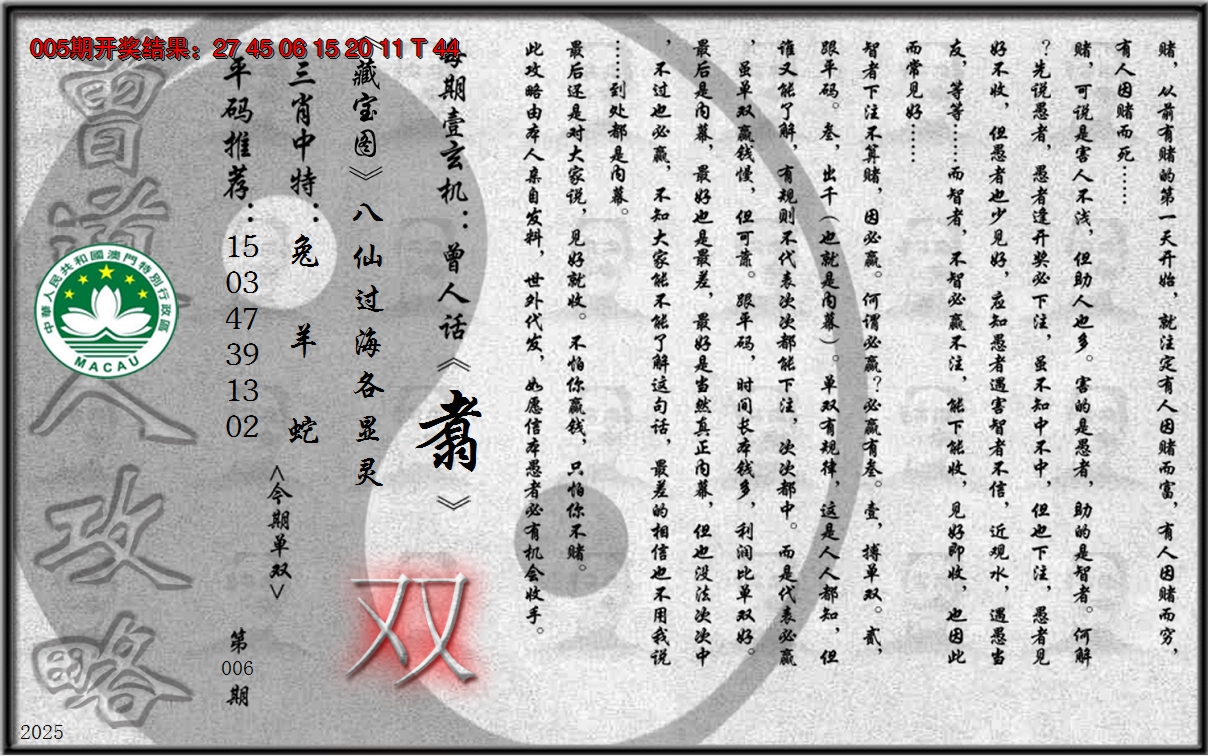 005期开奖结果：27 45 06 15 20 11 T 44
赌，从前有赌的第一天开始，就注定有人因赌而富，有人因赌而穷，
有人因赌而死……
赌，可说是害人不浅，但助人也多。害的是愚者，助的是智者。何解
？先说愚者，愚者逢开奖必下注，虽不知中不中，但也下注，愚者见
好不收，但愚者也少见好，应知愚者遇害智者不信，近观水，遇愚当
友，等等……而智者，不智必赢不注，能下能收，见好即收，也因此
而常见好……
智者下注不算赌，因必赢。何谓必赢？必赢有叁。壹，搏单双。贰，
跟平码。叁，出千（也就是内幕）。单双有规律，这是人人都知，但
谁又能了解，有规则不代表次次都能下注，次次都中。而是代表必赢
，虽单双赢钱慢，但可靠。跟平码，时间长本钱多，利润比单双好。
最后是内幕，最好也是最差，最好是当然真正内幕，但也没法次次中
，不过也必赢，不知大家能不能了解这句话，最差的相信也不用我说
……到处都是内幕。
最后还是对大家说，见好就收。不怕你赢钱，只怕你不赌。
此攻略由本人亲自发料，世外代发，如愿信本愚者必有机会收手。
每期壹玄机：曾人话《翥》
《藏宝图》八仙过海各显灵
三肖中特：兔 羊 蛇
平码推荐：15 03 47 39 13 02
<今期单双>
双
第006期
曾道人攻略
中華人民共和國澳門特別行政區
MACAU
2025